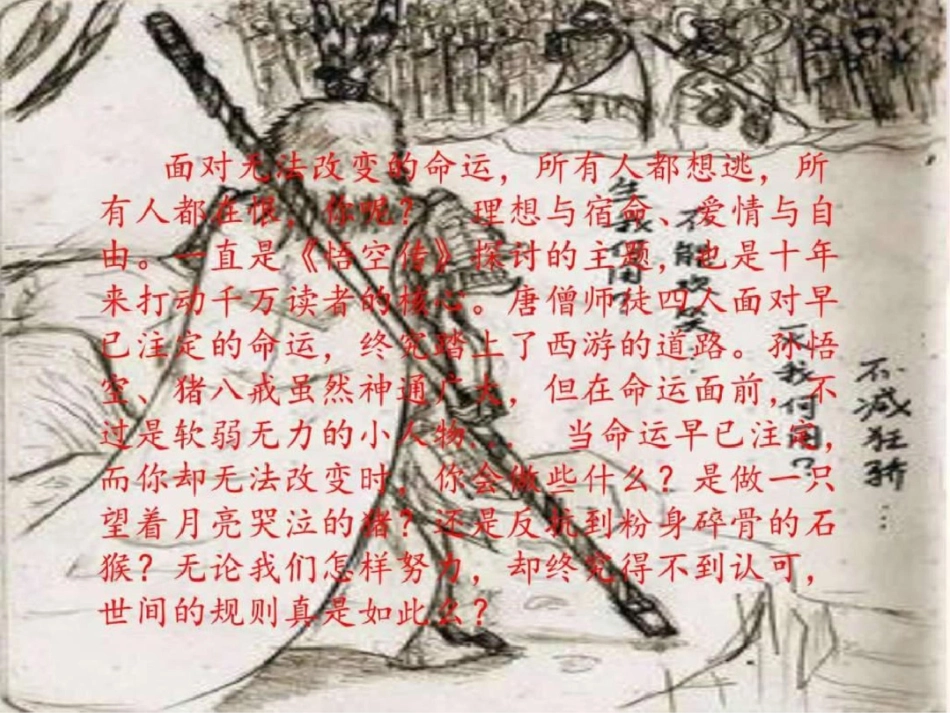 面对无法改变的命运，所有人都想逃，所
有人都在恨，你呢？ 理想与宿命、爱情与自
由。一直是《悟空传》探讨的主题，也是十年
来打动千万读者的核心。唐僧师徒四人面对早
已注定的命运，终究踏上了西游的道路。孙悟
空、猪八戒虽然神通广大，但在命运面前，不
过是软弱无力的小人物... 当命运早已注定，
而你却无法改变时，你会做些什么？是做一只
望着月亮哭泣的猪？还是反抗到粉身碎骨的石
猴？无论我们怎样努力，却终究得不到认可，
世间的规则真是如此么？
生我何用？
不能欢笑
灭我何用？
不减狂骄…